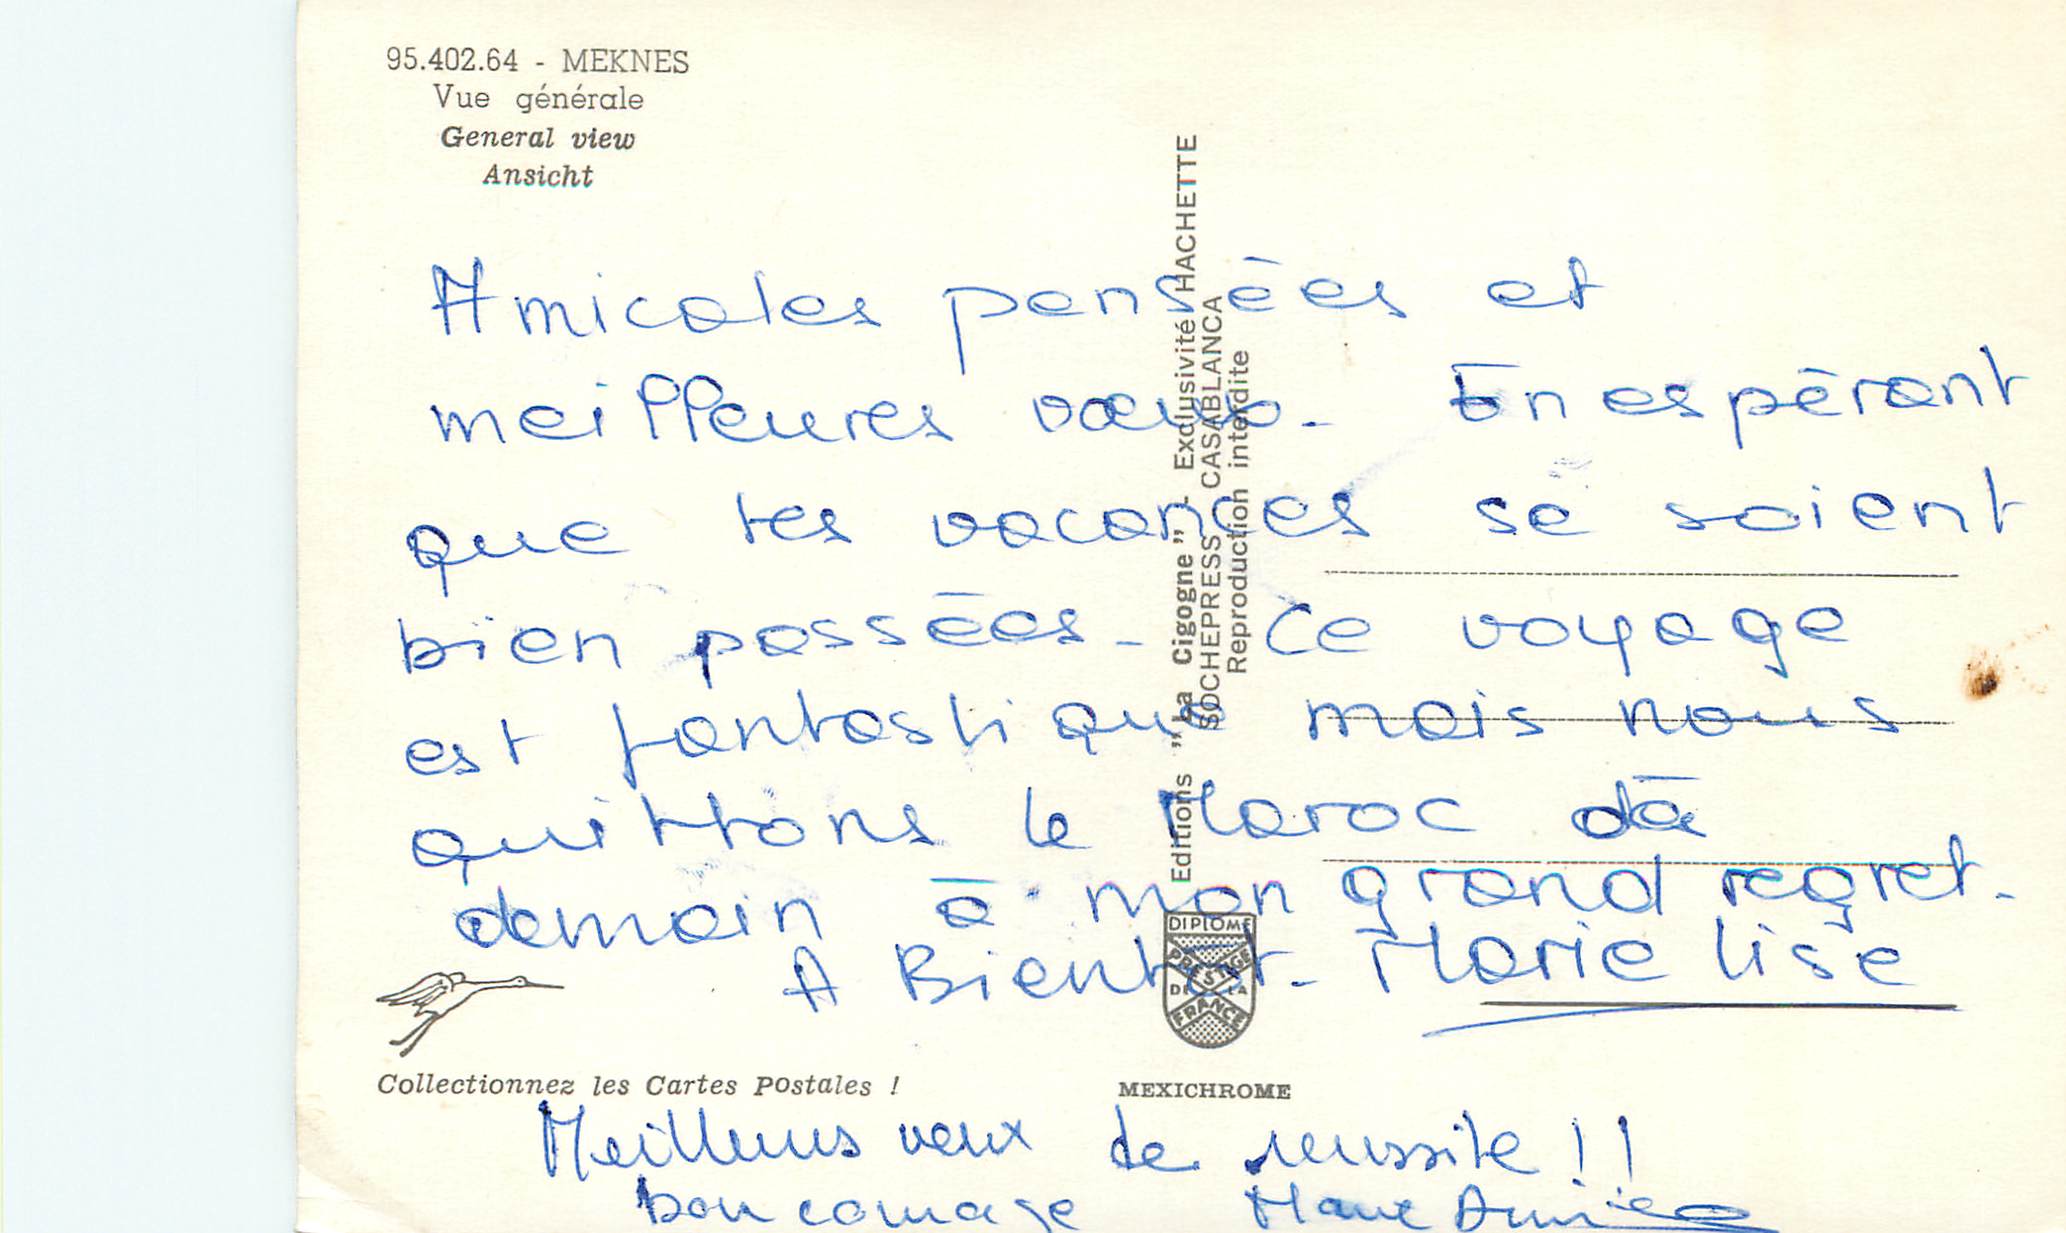 95.402.64 - MEKNES
Vue générale
General view
Ansicht
Amicales pensées et
meilleures vœux. En espérant
que tes vacances se soient
bien passées - Ce voyage
est fantastique mais nous
quittons le Maroc dès
demain à mon grand regret.
A Bientôt. Marie lise
Editions "La Cigogne" - Exclusivité HACHETTE
SOCHEPRESS CASABLANCA
Reproduction interdite
DIPLOME
PRESTIGE
DE LA
FRANCE
Collectionnez les Cartes Postales !
MEXICHROME
Meilleurs veux de reussite !!
bon courage